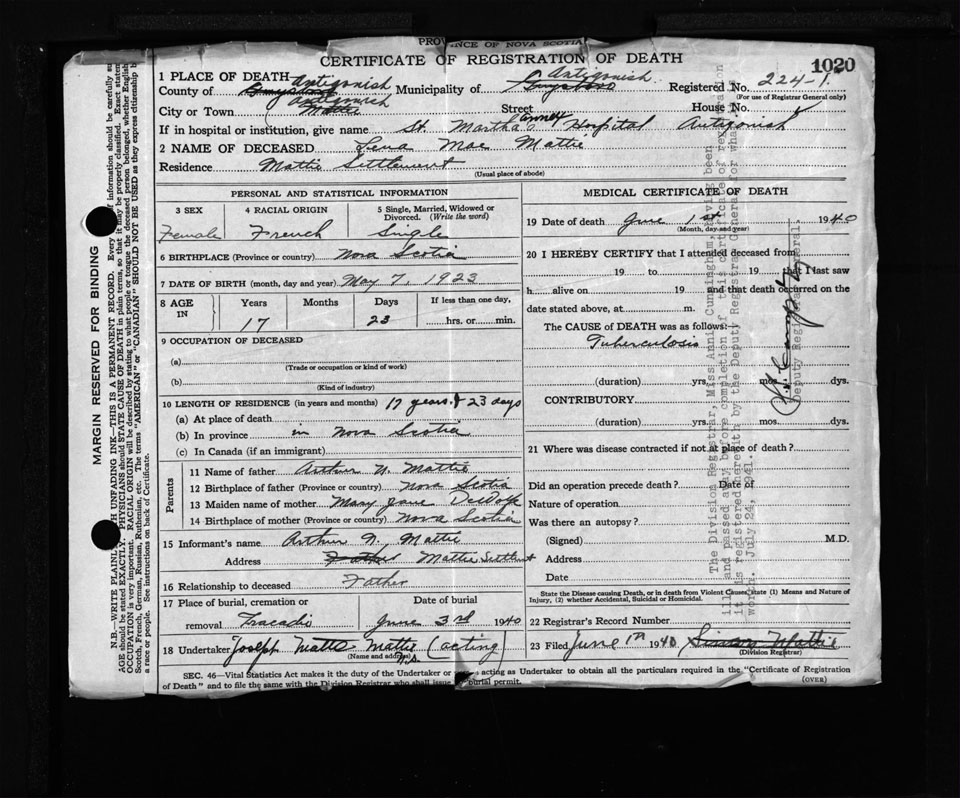 PROVINCE OF NOVA SCOTIA
CERTIFICATE OF REGISTRATION OF DEATH
1020
1 PLACE OF DEATH
County of Guysboro Antigonish Municipality of Guysboro Antigonish Registered No. 224-1
(For use of Registrar General only)
City or Town Mattie Antigonish Street House No.
If in hospital or institution, give name St. Martha's Annex Hospital Antigonish
2 NAME OF DECEASED Lena Mae Mattie
Residence Mattie Settlement
(Usual place of abode)
PERSONAL AND STATISTICAL INFORMATION
3 SEX 4 RACIAL ORIGIN 5 Single, Married, Widowed or Divorced. (Write the word)
Female French Single
6 BIRTHPLACE (Province or country) Nova Scotia
7 DATE OF BIRTH (month, day and year) May 7, 1923
8 AGE IN Years Months Days If less than one day,
17 23 hrs. or min.
9 OCCUPATION OF DECEASED
(a)
(Trade or occupation or kind of work)
(b)
(Kind of industry)
10 LENGTH OF RESIDENCE (in years and months) 17 years & 23 days
(a) At place of death
(b) In province in Nova Scotia
(c) In Canada (if an immigrant)
Parents
11 Name of father Arthur N. Mattie
12 Birthplace of father (Province or country) Nova Scotia
13 Maiden name of mother Mary Jane DeWolfe
14 Birthplace of mother (Province or country) Nova Scotia
15 Informant's name Arthur N. Mattie
Address Father Mattie Settlent
16 Relationship to deceased Father
17 Place of burial, cremation or Date of burial
removal Tracadie June 3rd 1940
18 Undertaker Joseph Matte Mattie (acting)
(Name and address) N.S.
MEDICAL CERTIFICATE OF DEATH
19 Date of death June 1st 1940
(Month, day and year)
20 I HEREBY CERTIFY that I attended deceased from
19 to 19 that I last saw
h alive on 19 and that death occurred on the
date stated above, at m.
The CAUSE of DEATH was as follows:
Tuberculosis
(duration) yrs. mos. dys.
CONTRIBUTORY
(duration) yrs. mos. dys.
21 Where was disease contracted if not at place of death?
Did an operation precede death? Date of
Nature of operation
Was there an autopsy?
(Signed) M.D.
Address
Date
State the Disease causing Death, or in death from Violent Causes, state (1) Means and Nature of
Injury, (2) whether Accidental, Suicidal or Homicidal.
22 Registrar's Record Number
23 Filed June 1940 Simon Mattie
(Division Registrar)
SEC. 46—Vital Statistics Act makes it the duty of the Undertaker or acting as Undertaker to obtain all the particulars required in the "Certificate of Registration
of Death" and to file the same with the Division Registrar who shall issue burial permit.
(OVER)
The Division Registrar, Miss Annie Cunningham, having been
ill and passed away before completion of this certificate of registration
it is registered herewith by the Deputy Registrar General for what
worth. July 24, 1941.
Deputy Registrar General
MARGIN RESERVED FOR BINDING
N.B.—WRITE PLAINLY WITH UNFADING INK—THIS IS A PERMANENT RECORD. Every of information should be carefully
AGE should be stated EXACTLY. PHYSICIANS should STATE CAUSE OF DEATH in plain terms, so that it may be properly classified. Exact
OCCUPATION is very important. RACIAL ORIGIN will be described by stating to what people or tongue the deceased person belonged, whether English,
Scotch, French, German, Russian, Ruthenian, etc. The terms "AMERICAN" or "CANADIAN" SHOULD NOT BE USED as they express citizenship
a race or people. See instructions on back of Certificate.